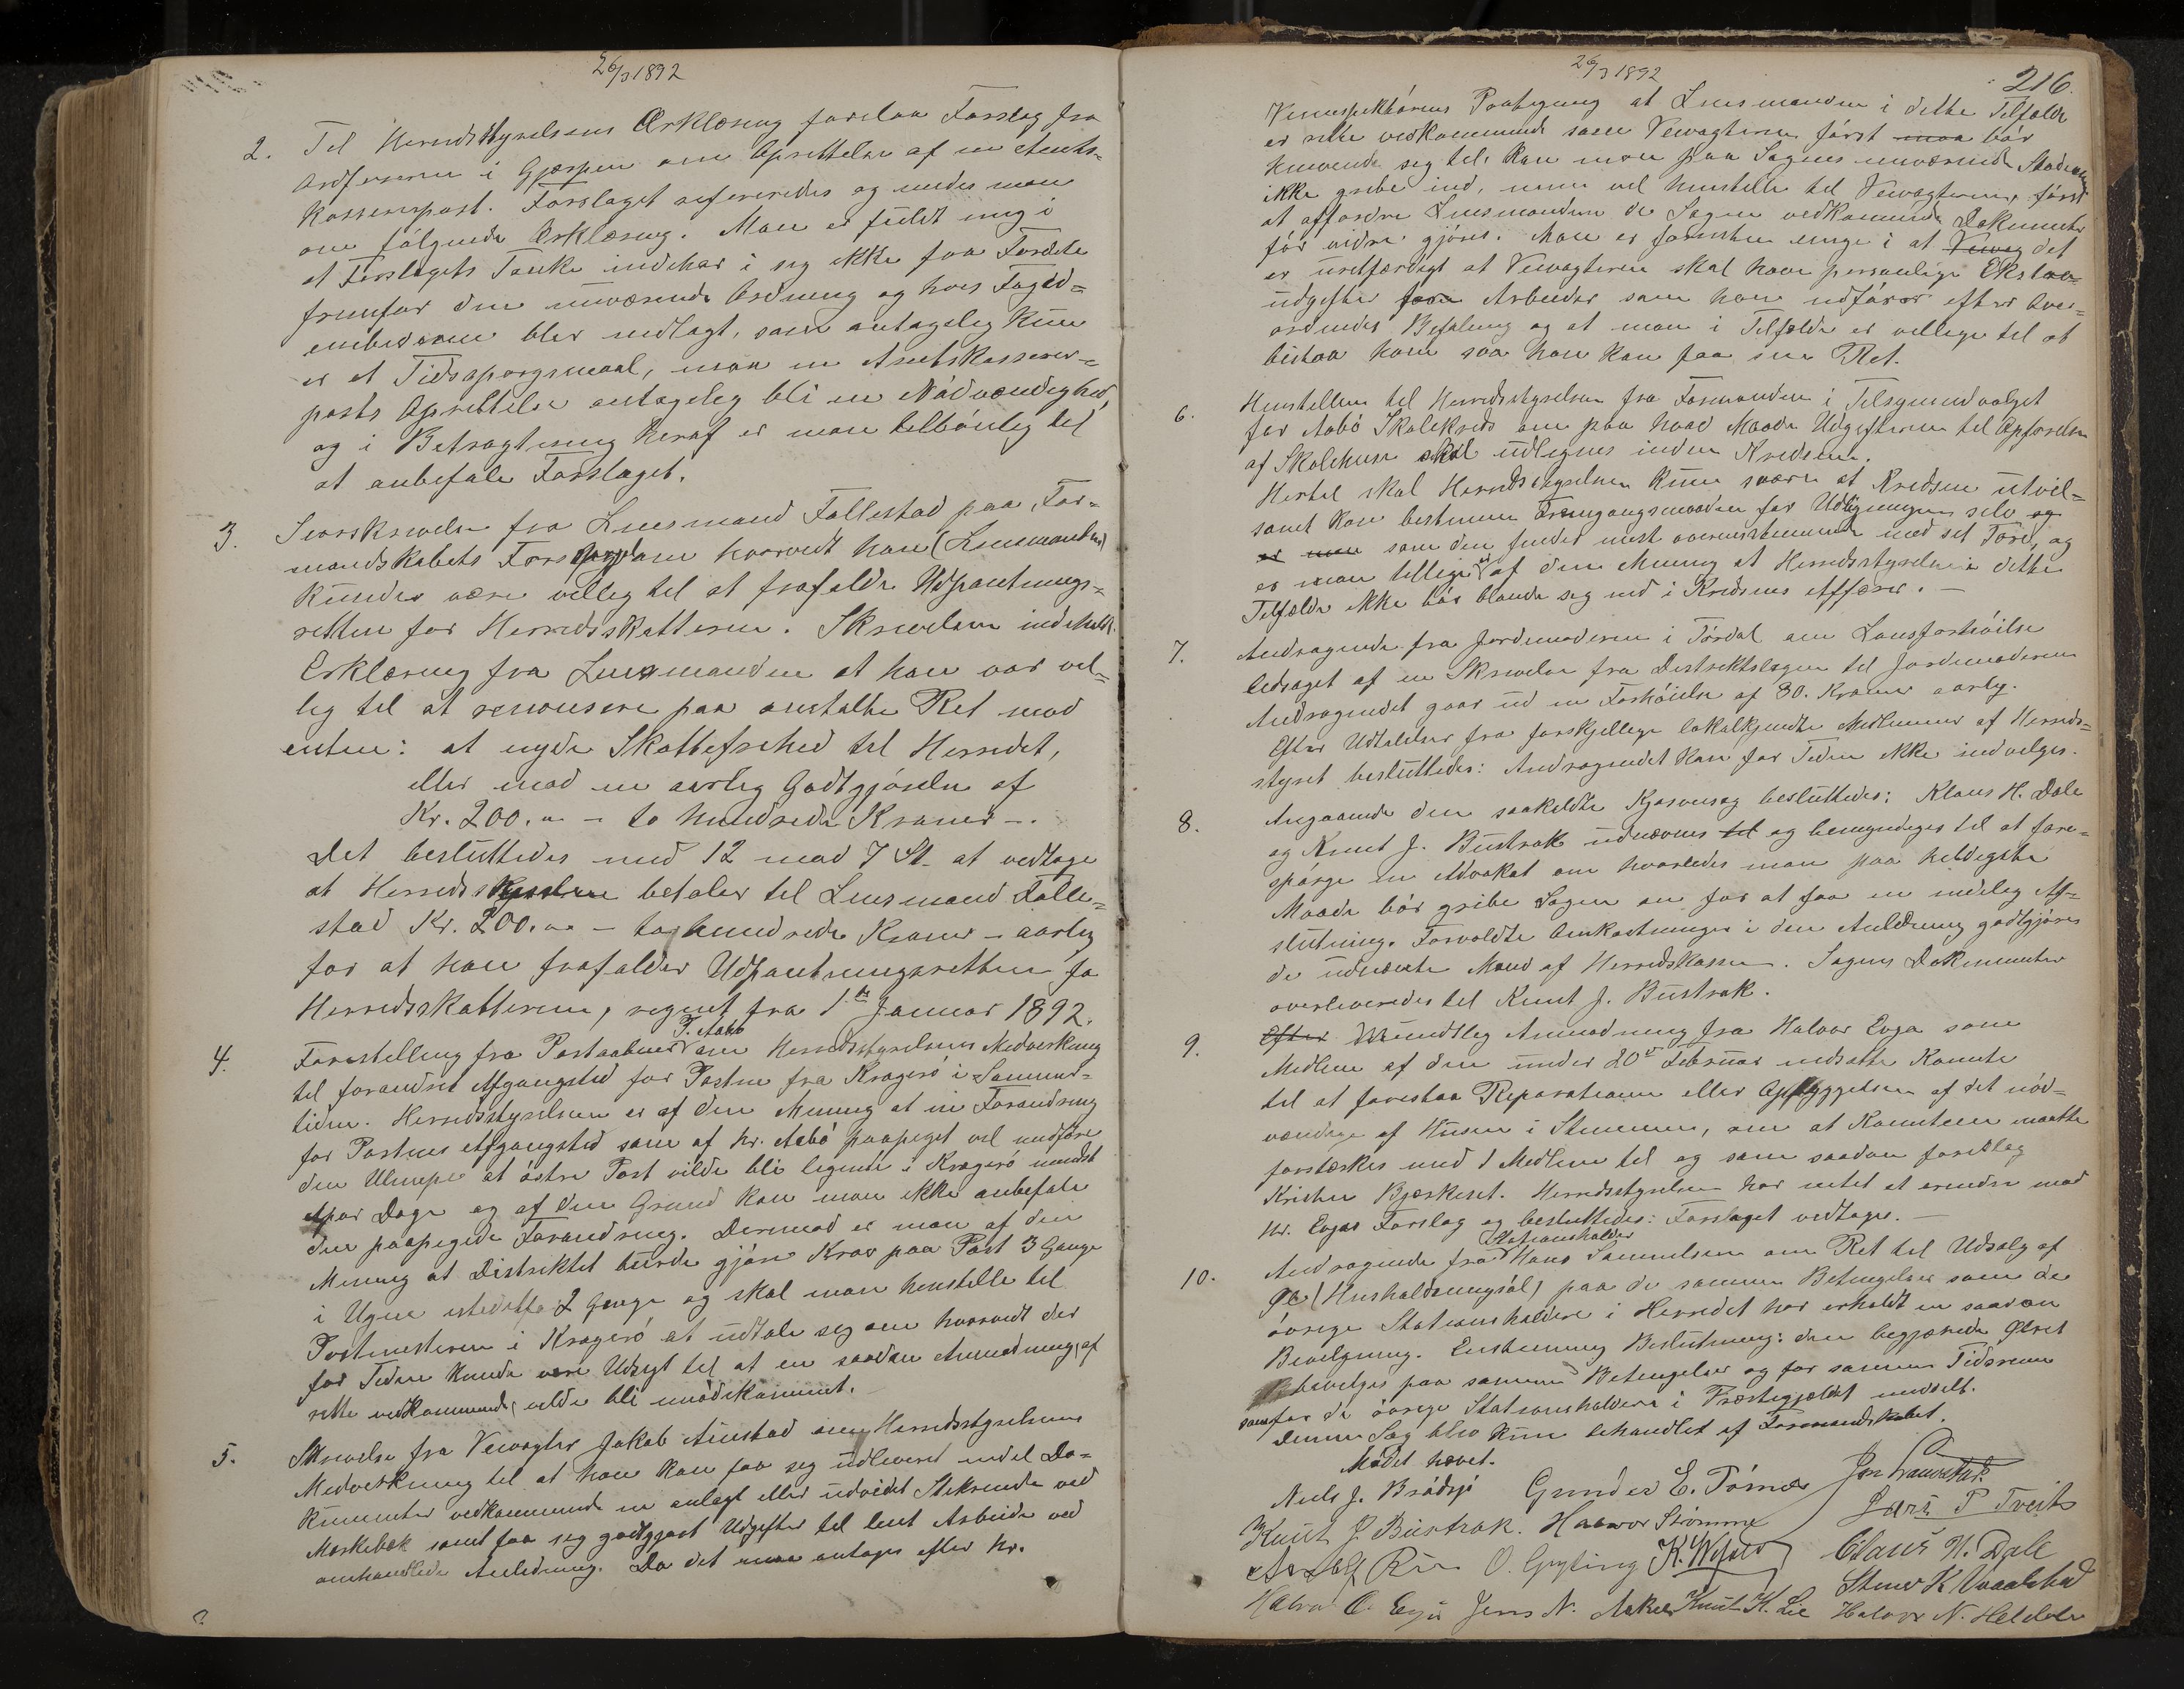 26/3 1892
2. Til Herredsstyrelsens Erklæring forelaa Forslag fra
Ordføreren i Gjerpen om Oprettelse af en Amts-
kassererpost. Forslaget refereredes og enedes man
om følgende Erklæring. Man er fuldt enig i
at Forslagets Tanke indehar i sig ikke faa Fordele
fremfor den nuværende Ordning og hvis Foged-
embederne blev nedlagt, som antagelig kun
er et Tidsspørgsmaal, maa en Amtskasserer-
posts Oprettelse antagelig bli en Nødvendighed,
og i Betragtning heraf er man tilbøielig til
at anbefale Forslaget.
3. Svarskrivelse fra Lensmand Tallestad paa For-
mandskabets Forespørgsel om hvorvidt han (Lensmanden)
kunde være villig til at frafalde Udpantnings-
retten for Herredsskatterne. Skrivelsen indeholdt
Erklæring fra Lensmanden at han var vil-
lig til at renonsere paa omtalte Ret mod
enten: at nyde Skattefrihed til Herredet,
eller mod en aarlig Godtgjørelse af
Kr. 200.00 – to hundrede Kroner –.
Det besluttedes med 12 mod 7 St. at vedtage
at Herredskassen betaler til Lensmand Talle-
stad Kr. 200.00 – to hundrede Kroner – aarlig
for at han frafalder Udpantningsretten fo
Herredsskatterne, regnet fra 1ste Januar 1892.
4. Forestilling fra Postaabner T. Aabø om Herredsstyrelsens Medvirkning
til forandret Afgangstid for Posten fra Kragerø i Sommer-
tiden. Herredsstyrelsen er af den Mening at en Forandring
for Postens Afgangstid som af Hr. Aabø paapeget vil medføre
den Ulempe at østre Post vilde bli liggende i Kragerø mindst
et par Dage og af den Grund kan man ikke anbefale
den paapegede Forandring. Derimod er man af den
Mening at Distriktet burde gjøre Krav paa Post 3 Gange
i Ugen istedetfor 2 Gange og skal man henstille til
Postmesteren i Kragerø at udtale sig om hvorvidt der
for Tiden kunde være Udsigt til at en saadan Anmodning, af
rette vedkommende, vilde bli imødekommet.
5. Skrivelse fra Veivogter Jakob Aaustad om Herredsstyrelsens
Medvirkning til at han kan faa sig udleveret endel Do-
kumenter vedkommende en anlagt eller udvidet Stikrende ved
Mørkebæk samt faa sig godtgjort Udgifter til leiet Arbeide ved
omhandlede Anledning. Da det maa antages efter Hr.
26/3 1892
216.
Veiinspektørens Paategning at Lensmanden i dette Tilfælde
er rette vedkommende som Veivogteren først maa bør
henvende sig til, kan man paa Sagens nuværende Stadium
ikke gribe ind, men vil henstille til Veivogteren, først
at affordre Lensmanden de Sagen vedkommende Dokumenter
før videre gjøres. Man er forresten enige i at Veivog det
er uretfærdigt at Veivogteren skal have personlige Ekstra-
udgifter for Arbeider som han udfører efter Over-
ordnedes Befaling og at man i Tilfælde er villige til at
bistaa ham saa han kan faa sin Ret.
6. Henstillen til Herredsstyrelsen fra Formanden i Tilsynsudvalget
for Aabø Skolekreds om paa hvad Maade Udgifterne til Opførelse
af Skolehuse skal udlignes inden Kredsen.
Hertil skal Herredsstyrelsen kun svare at Kredsen utvil-
somt kan bestemme Fremgangsmaaden for Udligningen selv og
er man som den finder mest overensstemmende med sit Tarv, og
er man tillige af den Mening at Herredsstyrelsen i dette
Tilfælde ikke bør blande sig ind i Kredsens Affærer. –
7. Andragende fra Jordmoderen i Tørdal om Lønsforhøielse
ledsaget af en Skrivelse fra Distriktslægen til Jordmoderen
Andragendet gaar ud en Forhøielse af 80. Kroner aarlig.
Efter Udtalelser fra forskjellige lokalkjendte Medlemmer af Herreds-
styret besluttedes: Andragendet kan for Tiden ikke indvilges.
8. Angaaende den saakaldte Kjørvesag besluttedes: Klaus H. Dale
og Knut J. Bustrak udnævnes til og bemyndiges til at fore-
spørge en Advokat om hvorledes man paa heldigste
Maade bør gribe Sagen an for at faa en endelig Af-
slutning. Forvoldte Omkostninger i den Anledning godtgjøres
de udnævnte Mænd af Herredskassen. Sagens Dokumenter
overleveredes til Knut J. Bustrak.
9. Efter Mundtlig Anmodning fra Halvor Evja som
Medlem af den under 20de Februar nedsatte Komite
til at forestaa Reparationen eller Opbyggelsen af det nød-
vendige af Husene i Stemmen, om at Komiteen maatte
forstærkes med 1 Medlem til og som saadan foreslog
Kristen Bjerkeset. Herredsstyrelsen har intet at erindre mod
Hr. Evjas Forslag og besluttedes: Forslaget vedtages. –
10. Andragende fra Stationsholder Hans Samuelsen om Ret til Udsalg af
Øl (Husholdningsøl) paa de samme Betingelser som de
øvrige Stationsholdere i Herredet har erholdt en saadan
Bevilgning. Enstemmig Beslutning: den begjærede Ølret
bevilges paa samme Betingelser og for samme Tidsrum
som for de øvrige Stationsholdere i Præstegjeldet meddelt.
Denne Sag blev kun behandlet af Formandskabet.
Mødet hævet.
Niels J. Brødsjø Gunder E. Tørnes
Knut J Bustrak. Halvor Strømme Lars P Tveit
O. Gryting Claus H. Dale
Halvor O. Evja Jens N. Knut K. Lie Halvor N. Heldøla